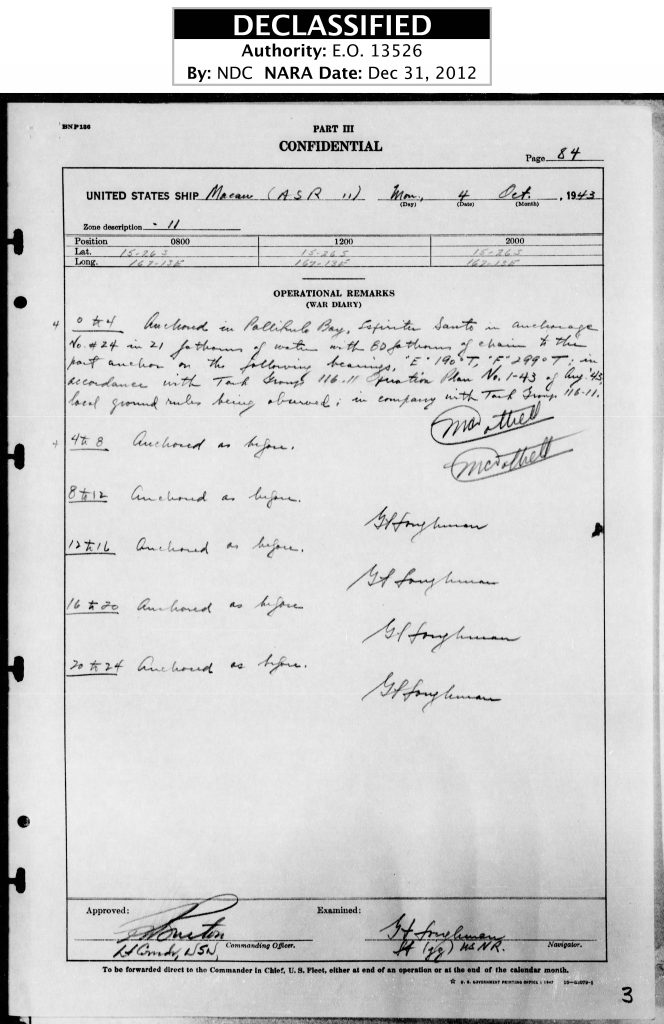 DECLASSIFIED
Authority: E.O. 13526
By: NDC NARA Date: Dec 31, 2012
BNP186
PART III
CONFIDENTIAL
Page 84
UNITED STATES SHIP Macaw (ASR 11) Mon, 4 Oct. , 1943
(Day) (Date) (Month)
Zone description - 11
Position 0800 1200 2000
Lat. 15-26 S 15-26 S 15-26 S
Long. 167-13E 167-13E 167-13E
OPERATIONAL REMARKS
(WAR DIARY)
0 to 4 Anchored in Pallikulo Bay, Espiritu Santo in anchorage
No. #24 in 21 fathoms of water with 80 fathoms of chain to the
port anchor on the following bearings, "E" 190°T, "F" 299°T; in
accordance with Task Group 116-11 Operation Plan No. 1-43 of Aug. '43
local ground rules being observed; in company with Task Group 116-11.
4 to 8 Anchored as before.
8 to 12 Anchored as before.
12 to 16 Anchored as before.
16 to 20 Anchored as before
20 to 24 Anchored as before.
Approved: Examined:
Lt Comdr, USN, Commanding Officer. Lt (jg) USNR. Navigator.
To be forwarded direct to the Commander in Chief, U. S. Fleet, either at end of an operation or at the end of the calendar month.
U. S. GOVERNMENT PRINTING OFFICE
3